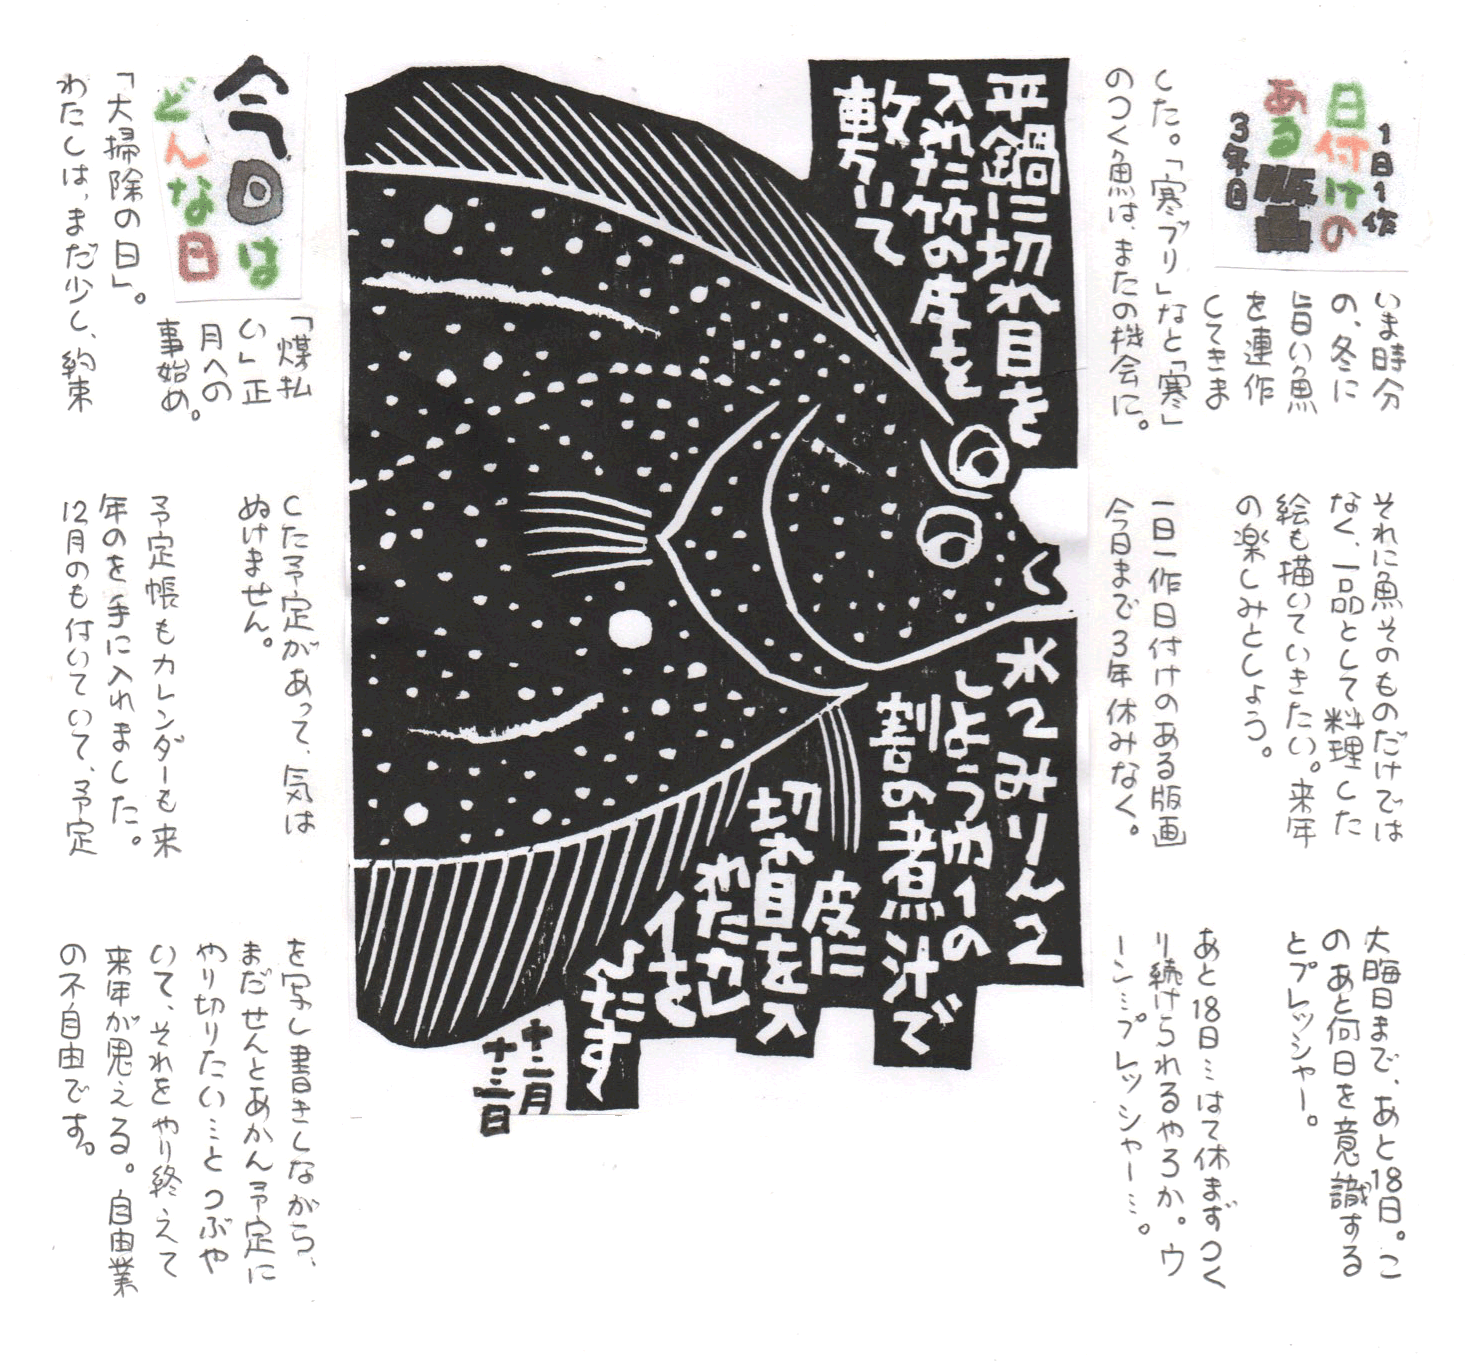 1日1作
日付けの
ある版画
3年目
いま時分
の、冬に
旨い魚
を連作
してきま
した。「寒ブリ」など「寒」
のつく魚は、またの機会に。
それに魚そのものだけでは
なく、一品として料理した
絵も描いていきたい。来年
の楽しみとしょう。
一日一作日付けのある版画
今日まで3年休みなく。
大晦日まで、あと18日。こ
のあと何日を意識する
とプレッシャー。
あと18日…はて休まずつく
り続けられるやろか。ウ
ーン…プレッシャー…。
平鍋に切れ目を
入れた竹の皮を
敷いて
水2みりん2
しょうゆ1の
割の煮汁で
皮に
切れ目を入
れたカレ
イを
たす
十二月
十三日
今日は
どんな日
「煤払
い」正
月への
事始め。
「大掃除の日」。
わたしは、まだ少し、約束
した予定があって、気は
ぬけません。
予定帳もカレンダーも来
年のを手に入れました。
12月のも付いていて、予定
を写し書きしながら、
まだせんとあかん予定に
やり切りたい…とつぶや
いて、それをやり終えて
来年が思える。自由業
の不自由です。